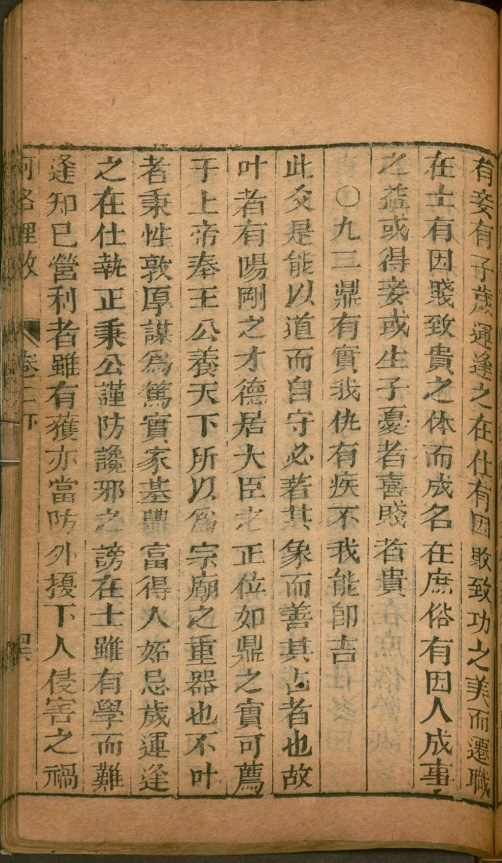 有妾有子歲運逢之在仕有因敗致功之美而遷職
在士有因賤致貴之休而成名在庶俗有因人成事
之益或得妾或生子憂者喜賤者貴
〇九三鼎有實我仇有疾不我能即吉
此爻是能以道而自守必著其象而善其占者也故
叶者有陽剛之才德居大臣之正位如鼎之實可薦
于上帝奉王公養天下所以爲宗廟之重器也不叶
者秉性敦厚謀爲篤實家基豐富得人妬忌歲運逢
之在仕執正秉公謹防讒邪之謗在士雖有學而難
逢知已營利者雖有獲亦當防外擾下人侵害之禍
河洛理數 卷二下